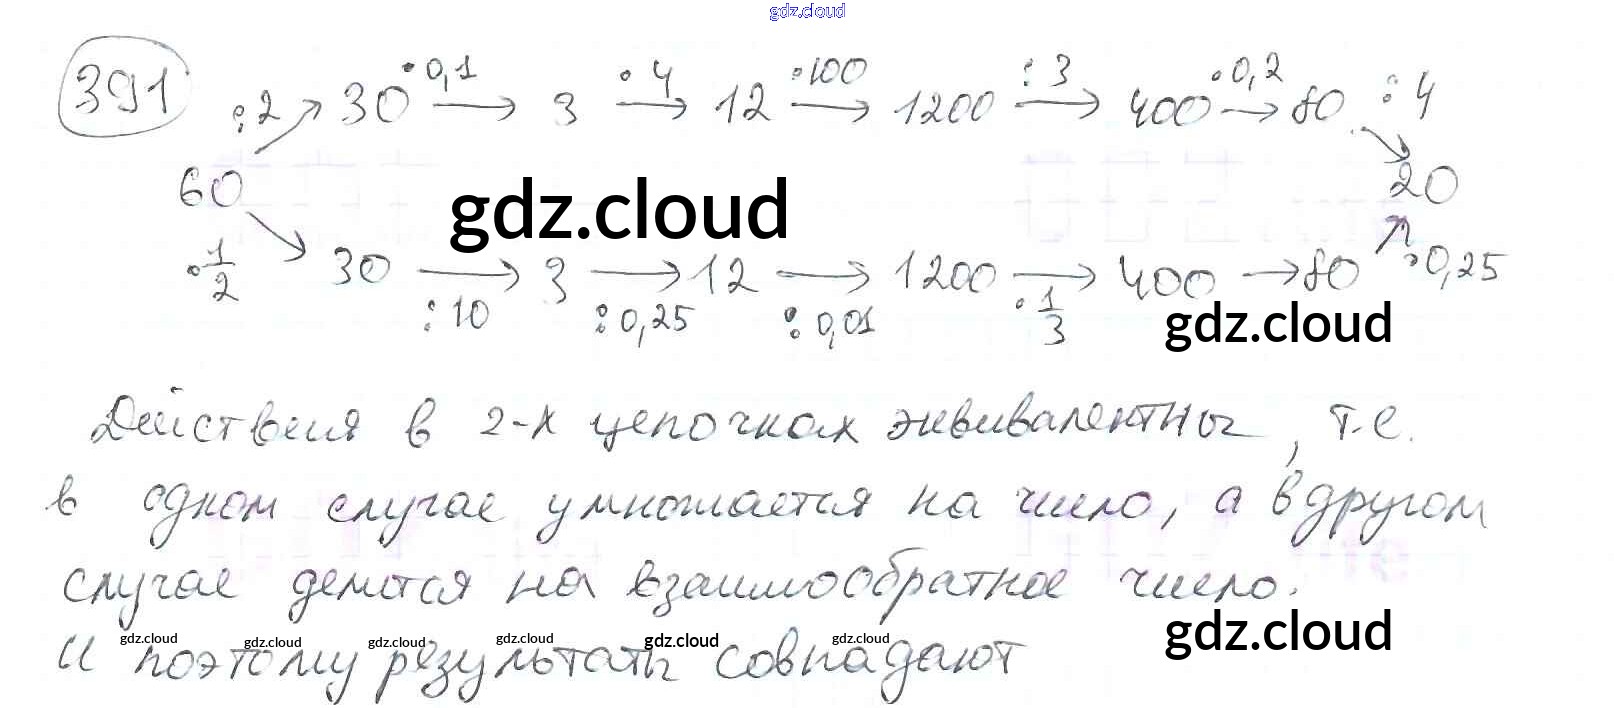 gdz.cloud
391
:2 30 ·0,1 → 3 ·4 → 12 ·100 → 1200 :3 → 400 ·0,2 → 80 :4
60 gdz.cloud 20
·1/2 30 → :10 3 → :0,25 12 → :0,01 1200 → ·1/3 400 → 80 ·0,25
gdz.cloud
Действия в 2-х цепочках эквивалентны, т.е.
в одном случае умножается на число, а в другом
случае делится на взаимообратное число.
gdz.cloud
gdz.cloud gdz.cloud gdz.cloud gdz.cloud gdz.cloud gdz.cloud
И поэтому результаты совпадают